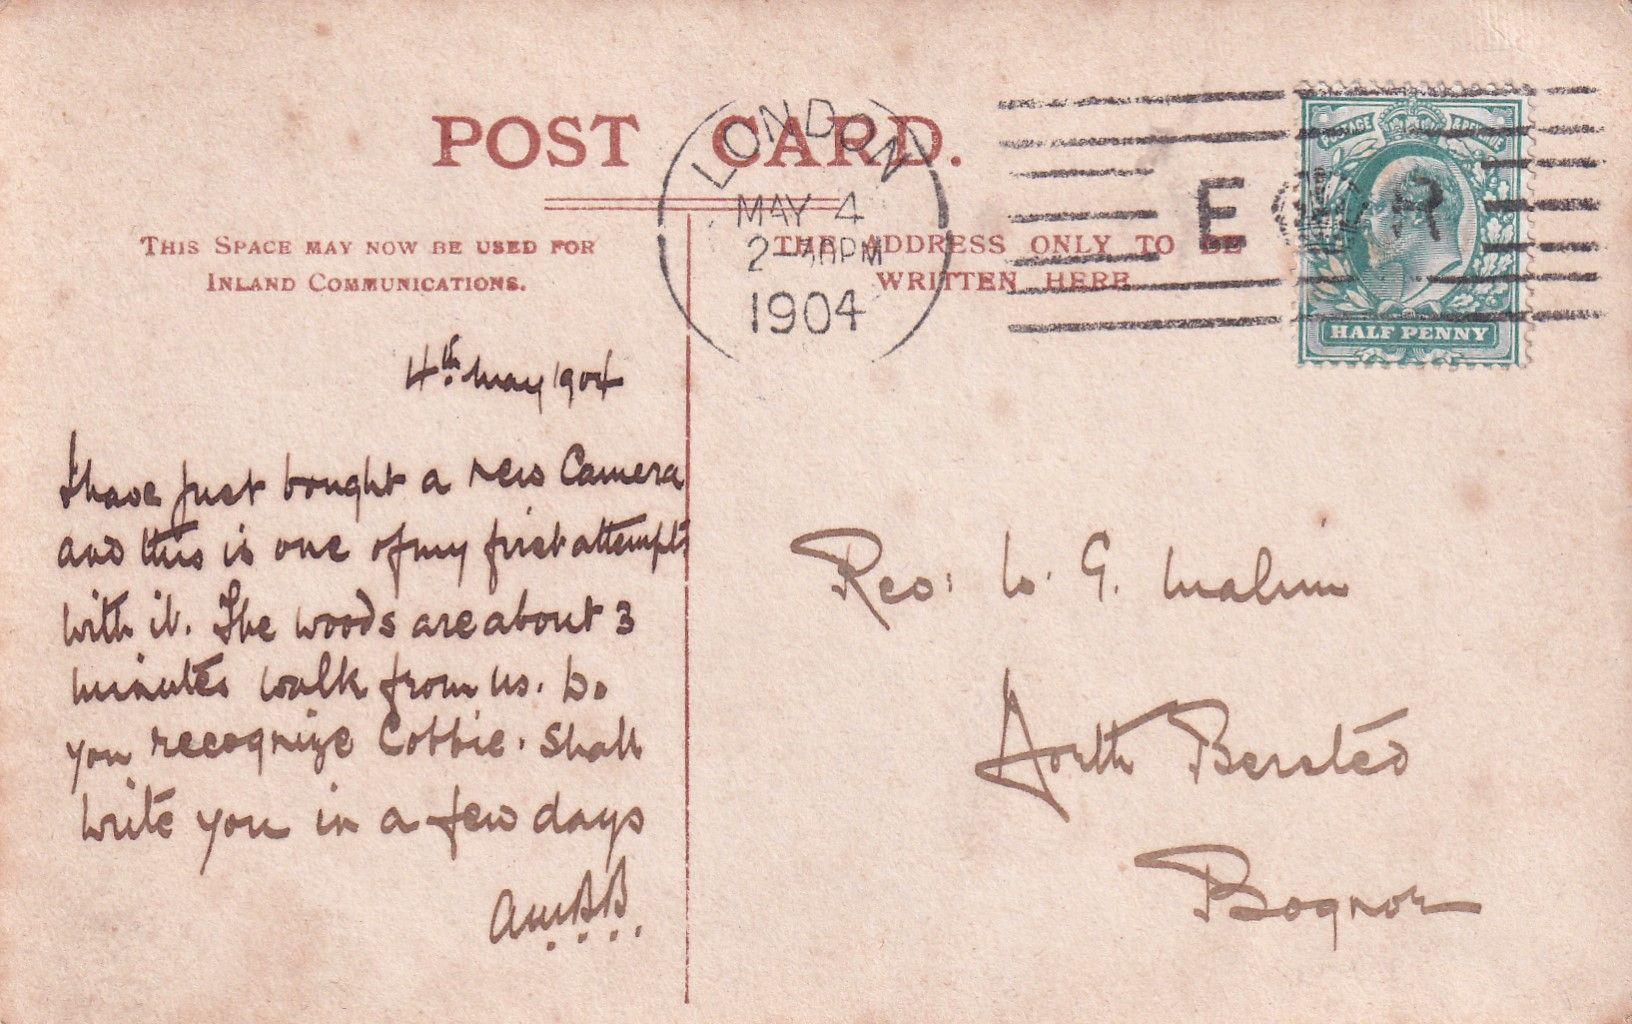 POST CARD.
THIS SPACE MAY NOW BE USED FOR
INLAND COMMUNICATIONS.
THE ADDRESS ONLY TO BE
WRITTEN HERE.
LONDON
MAY 4
2 PM
1904
E R
POSTAGE
HALF PENNY
4th May 1904
I have just bought a new Camera
and this is one of my first attempts
with it. The woods are about 3
minutes walk from us. Do
you recognize Cobbie. Shall
write you in a few days
A.W.B.B.
Rev: W. G. Malim
North Bersted
Bognor